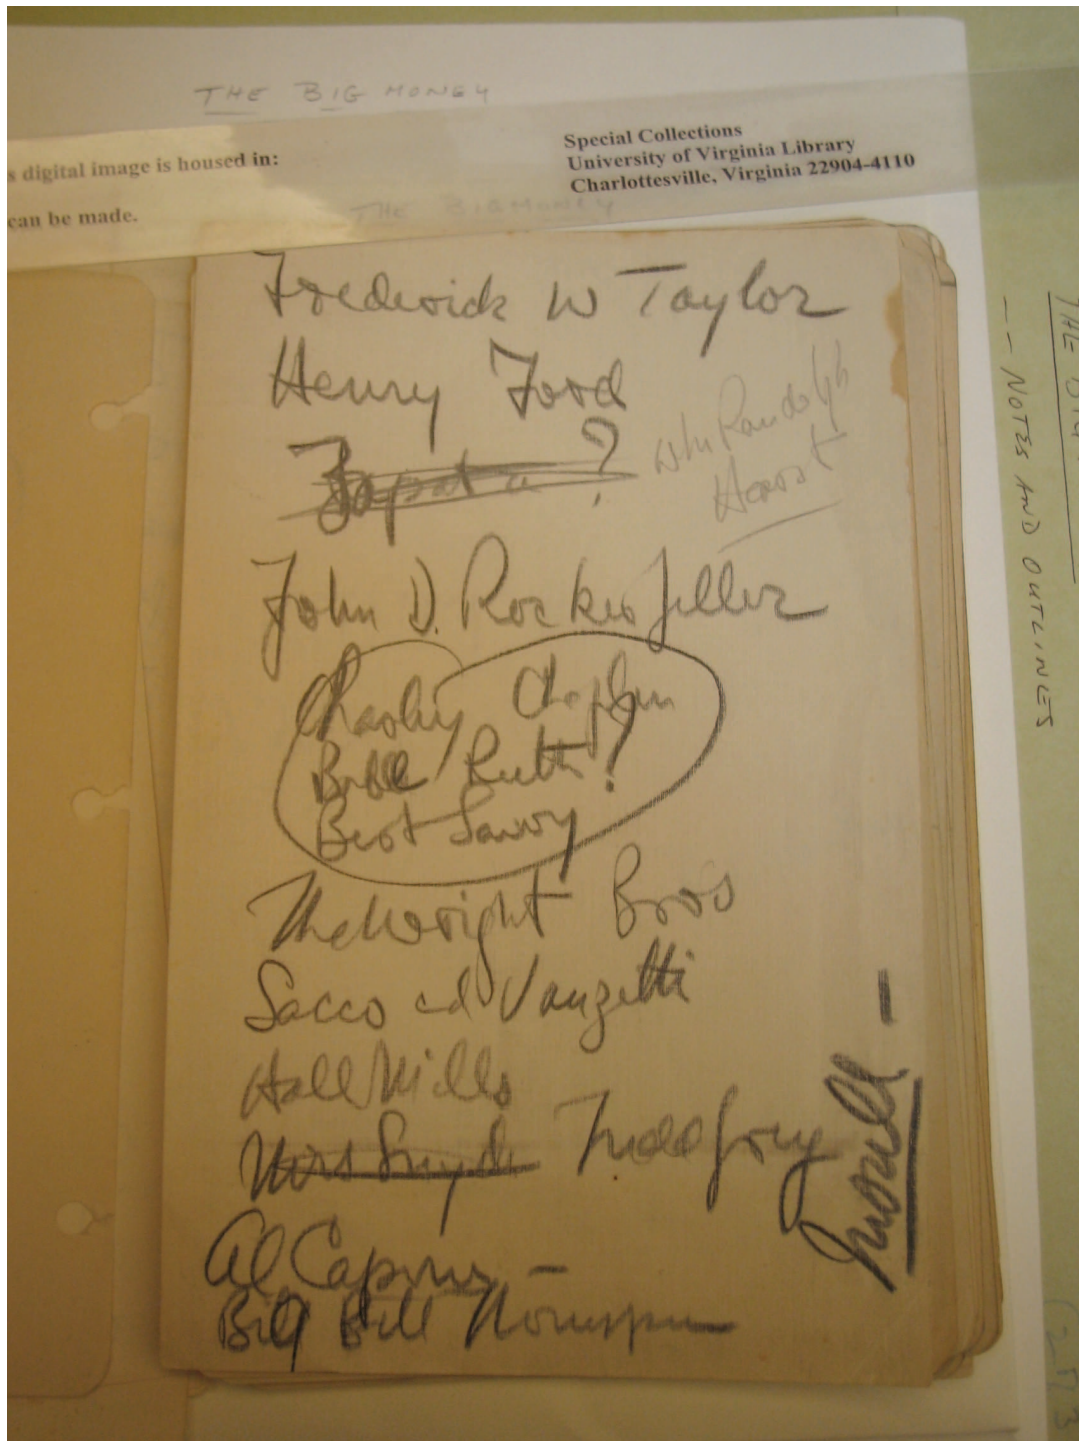 THE BIG MONEY
s digital image is housed in:
can be made.
Special Collections
University of Virginia Library
Charlottesville, Virginia 22904-4110
THE BIG MONEY
Frederick W Taylor
Henry Ford
Zapata ?
Wm Randolph
Hearst
John D. Rockefeller
Charley Chaplin
Babe Ruth ?
Bert Savoy
The Wright Bros
Sacco and Vanzetti
Hall Mills
Mrs Snyder Judd Gray
Al Capone –
Bill Thompson
Insull –
THE BIG
-- NOTES AND OUTLINES